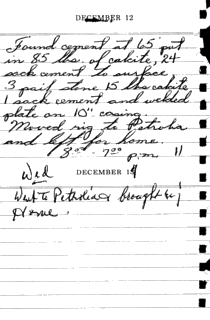 DECEMBER 12
Found cement at 65' put
in 85 lbs. of calcite, 24
sack cement to surface
3 pail stone 15 lbs calcite
1 sack cement and welded
plate on 10" casing.
Moved rig to Petrolia
and left for home.
8:00 - 7:00 p.m. 11
Wed
DECEMBER 13
Went to Petrolia & brought rig
Home.